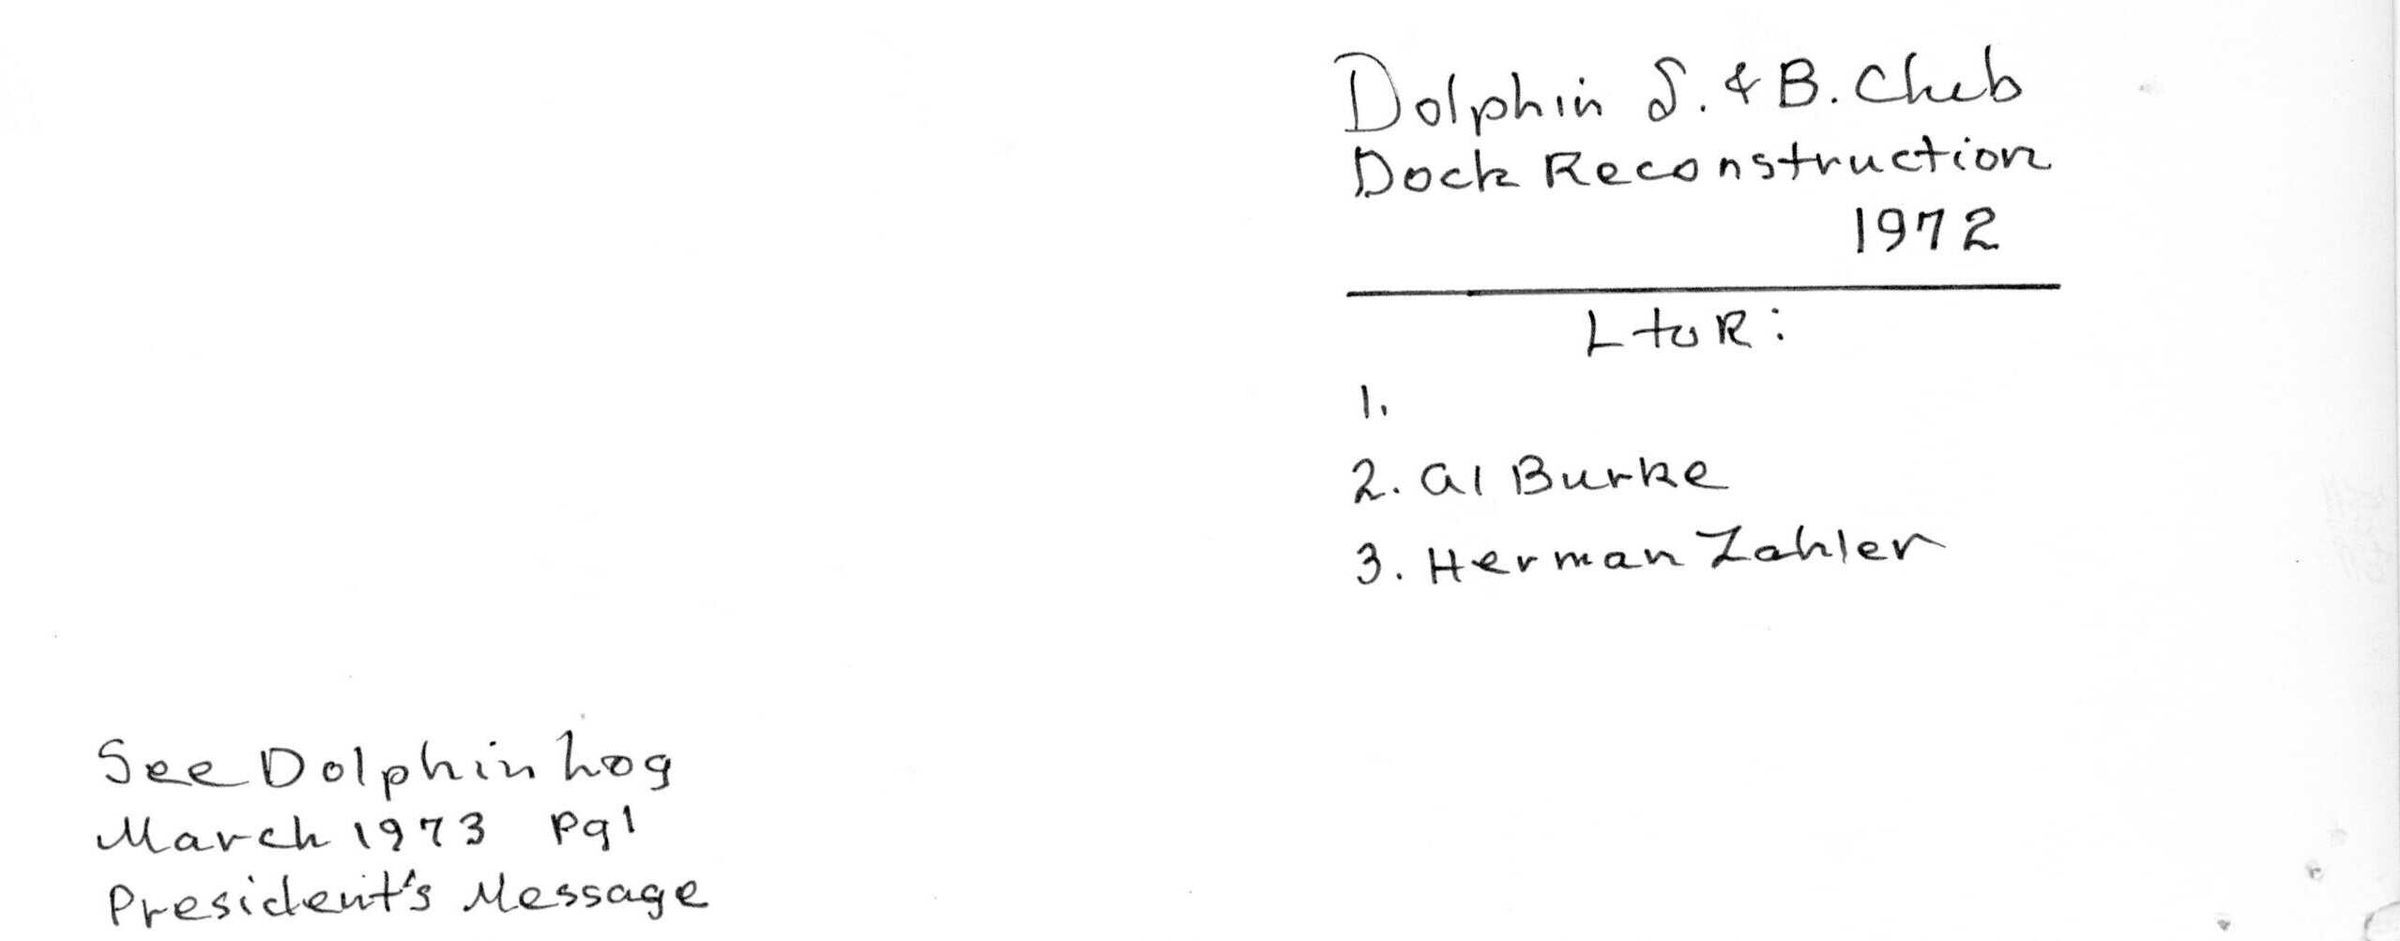 Dolphin S. & B. Club
Dock Reconstruction
1972
L to R:
1.
2. Al Burke
3. Herman Zahler
See Dolphin Log
March 1973 Pg 1
President's Message